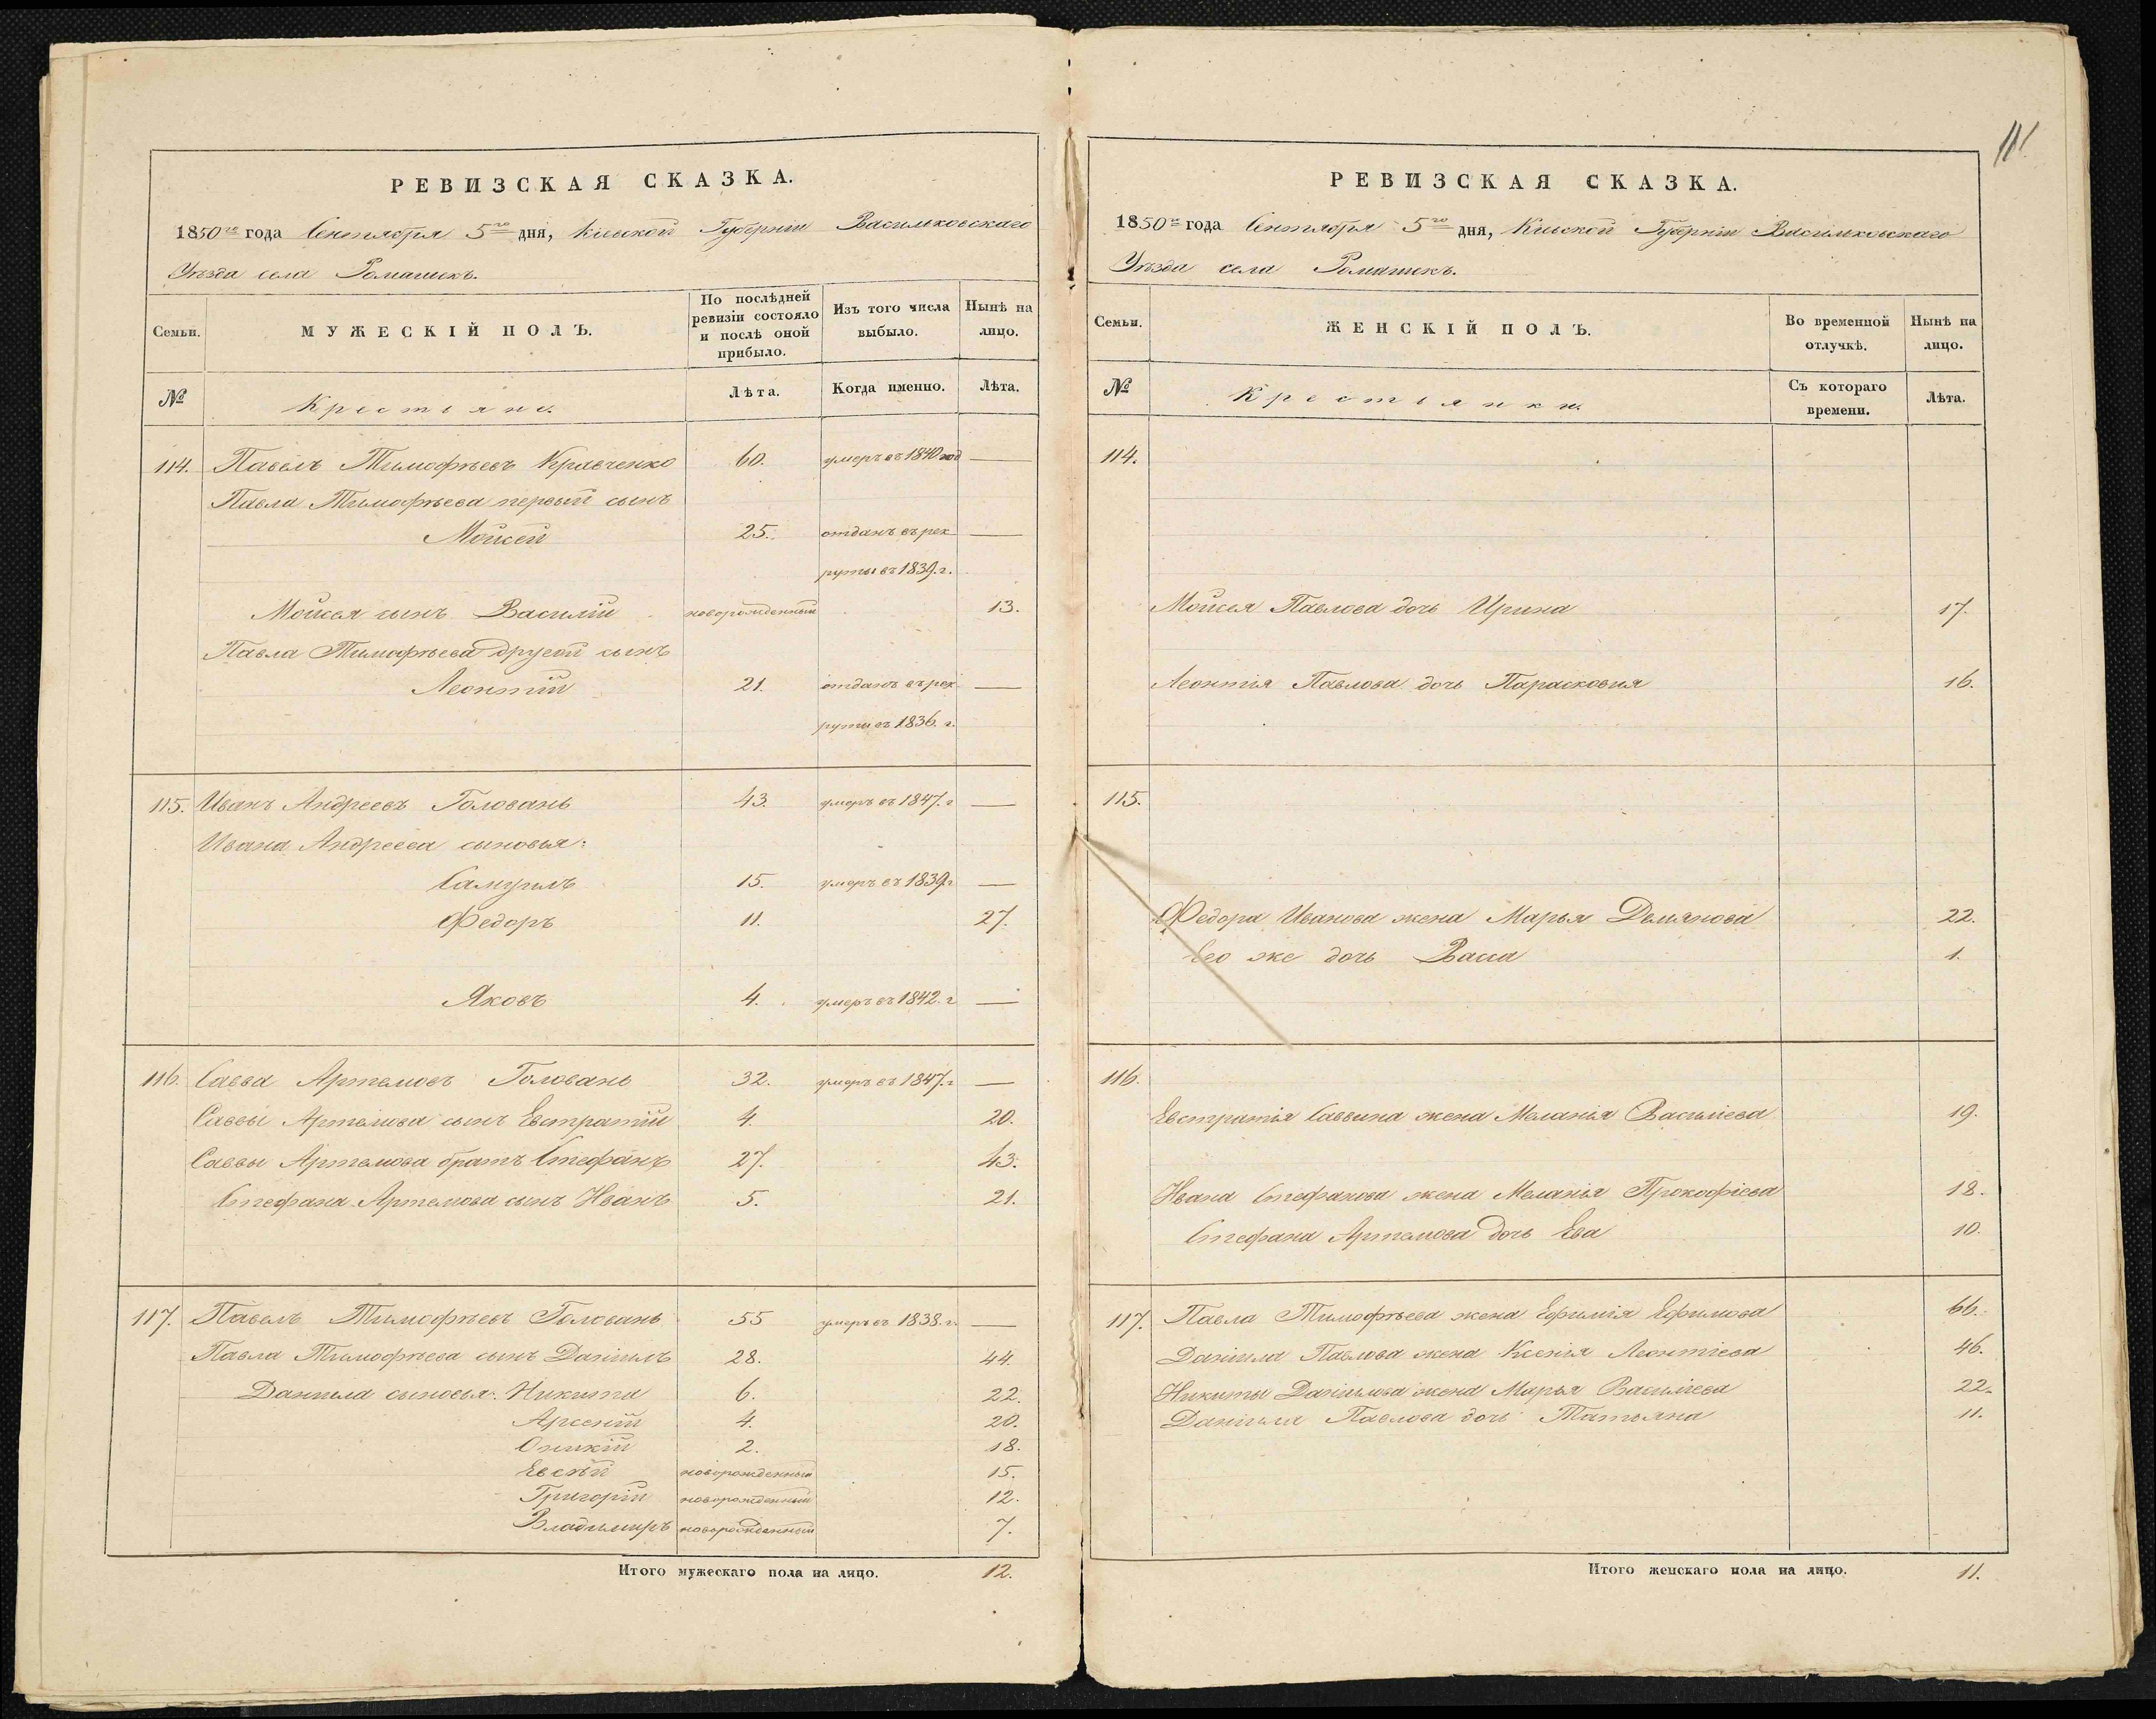 РЕВИЗСКАЯ СКАЗКА.
1850го года Сентября 5го дня, Кіевской Губерніи Васильковскаго
Уѣзда села Ромашекъ.
Семьи.
МУЖЕСКІЙ ПОЛЪ.
По послѣдней ревизіи состояло и послѣ оной прибыло.
Изъ того числа выбыло.
Нынѣ на лицо.
№
Крестьяне.
Лѣта.
Когда именно.
Лѣта.
114. Павелъ Тимофѣевъ Кравченко 60. умеръ въ 1840 год —
Павла Тимофѣева первый сынъ
Мойсей 25. отданъ въ рек- —
руты въ 1839. г.
Мойсея сынъ Василій новорожденный 13.
Павла Тимофѣева другой сынъ
Леонтій 21. отданъ въ рек- —
руты въ 1836. г.
115. Иванъ Андреевъ Головань 43. умеръ въ 1847. г —
Ивана Андреева сыновья:
Самуилъ 15. умеръ въ 1839 г —
Федоръ 11. 27.
Яковъ 4. умеръ въ 1842. г —
116. Савва Артемовъ Головань 32. умеръ въ 1847. г —
Саввы Артемова сынъ Евстратій 4. 20.
Саввы Артемова братъ Стефанъ 27. 43.
Стефана Артемова сынъ Иванъ 5. 21.
117. Павелъ Тимофѣевъ Головань 55 умеръ въ 1838. г. —
Павла Тимофѣева сынъ Даніилъ 28. 44.
Даніила сыновья: Никита 6. 22.
Арсеній 4. 20.
Оникій 2. 18.
новорожденный 15.
Григорій новорожденный 12.
Владимиръ новорожденный 7.
Итого мужескаго пола на лицо. 12.
111.
РЕВИЗСКАЯ СКАЗКА.
1850го года Сентября 5го дня, Кіевской Губерніи Васильковскаго
Уѣзда села Ромашекъ.
Семьи.
ЖЕНСКІЙ ПОЛЪ.
Во временной отлучкѣ.
Нынѣ на лицо.
№
Крестьянки.
Съ котораго времени.
Лѣта.
114.
Мойсея Павлова дочь Ирина 17.
Леонтія Павлова дочь Парасковия 16.
115.
Федора Иванова жена Марья Демянова 22.
Его же дочь Васса 1.
116.
Евстратія Саввина жена Меланія Васильева 19.
Ивана Стефанова жена Меланія Прокофіева 18.
Стефана Артемова дочь Ева 10.
117. Павла Тимофѣева жена Ефимія Ефимова 66.
Даніила Павлова жена Ксенія Леонтіева 46.
Никиты Даніилова жена Марья Василіева 22.
Даніила Павлова дочь Татьяна 11.
Итого женскаго пола на лицо. 11.